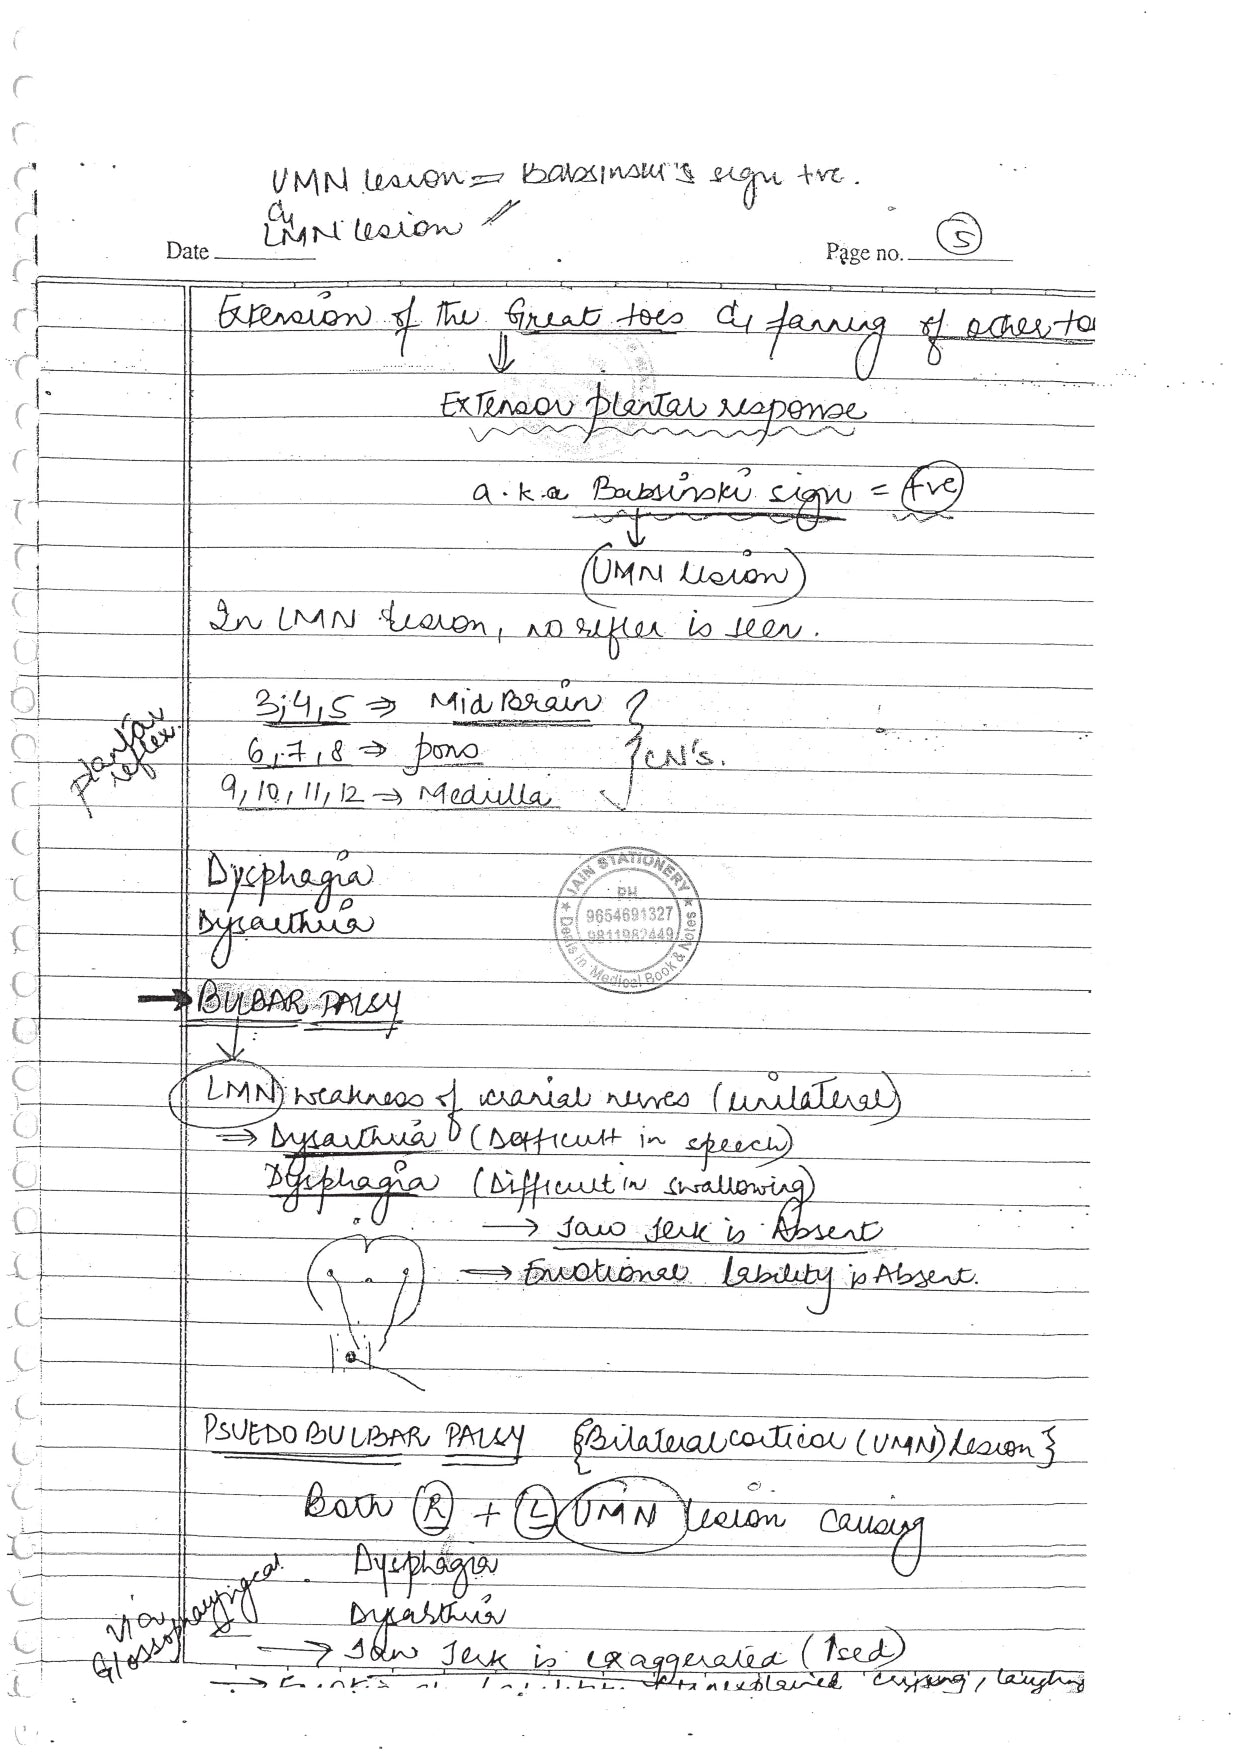 UMN lesion = Babsinski's sign +ve.
LMN lesion
Date
Page no. 5
Extension of the Great toes & fanning of other to
Extensor plantar response
a.k.a Babsinski sign = +ve
UMN lesion
In LMN lesion, no reflex is seen.
3,4,5 ⇒ Mid Brain
6,7,8 ⇒ pons
CN's.
9,10,11,12 → Medulla
plantar reflex.
Dysphagia
Dysarthria
JAIN STATIONERY
PH
9654691327
9811982449
Deals in Medical Book & Notes
→ BULBAR PALSY
LMN weakness of cranial nerves (unilateral)
⇒ Dysarthria (Difficult in speech)
Dysphagia (Difficult in swallowing)
→ Jaw Jerk is Absent
→ Emotional lability is Absent.
PSUEDOBULBAR PALSY {Bilateral cortical (UMN) lesion}
Both R + L UMN lesion causing
Dysphagia
Dysarthria
Glossopharyngeal
→ Jaw Jerk is exaggerated (↑sed)
→ unexplained crying, laughing